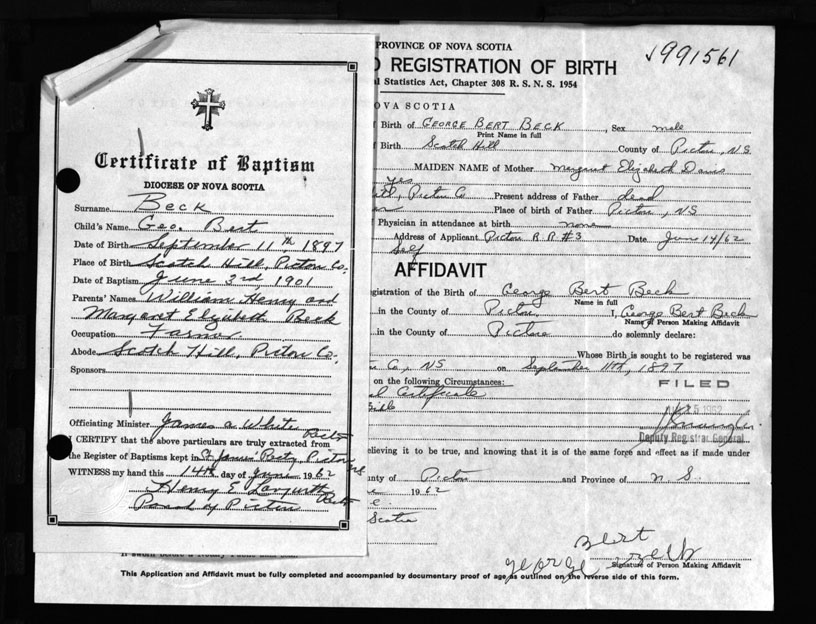 Certificate of Baptism
DIOCESE OF NOVA SCOTIA
Surname Beck
Child's Name Geo. Bert
Date of Birth September 11th 1897
Place of Birth Scotch Hill, Pictou Co.
Date of Baptism June 3rd 1901
Parents' Names William Henry and
Margaret Elizabeth Beck
Occupation Farmer
Abode Scotch Hill, Pictou Co.
Sponsors
Officiating Minister James A White
I CERTIFY that the above particulars are truly extracted from
the Register of Baptisms kept in St James Pictou NS
WITNESS my hand this 14th day of June 1962
Henry E
Parish of Pictou
PROVINCE OF NOVA SCOTIA
√991561
REGISTRATION OF BIRTH
Statistics Act, Chapter 308 R. S. N. S. 1954
NOVA SCOTIA
of Birth of GEORGE BERT BECK, Sex male
Print Name in full
Birth Scotch Hill County of Pictou, N.S
MAIDEN NAME of Mother Margaret Elizabeth
yes
Pictou Co Present address of Father dead
Place of birth of Father Pictou, NS
Physician in attendance at birth none
Address of Applicant Pictou R R #3 Date June 14/62
Self
AFFIDAVIT
Registration of the Birth of George Bert Beck
Name in full
in the County of Pictou I, George Bert Beck
Name of Person Making Affidavit
in the County of Pictou do solemnly declare:
Whose Birth is sought to be registered was
Co., NS on September 11th, 1897
on the following Circumstances:
Certificate
FILED
1962
Deputy Registrar General
believing it to be true, and knowing that it is of the same force and effect as if made under
County of Pictou and Province of N. S.
1962
Scotia
George Bert Beck
Signature of Person Making Affidavit
This Application and Affidavit must be fully completed and accompanied by documentary proof of age as outlined on the reverse side of this form.